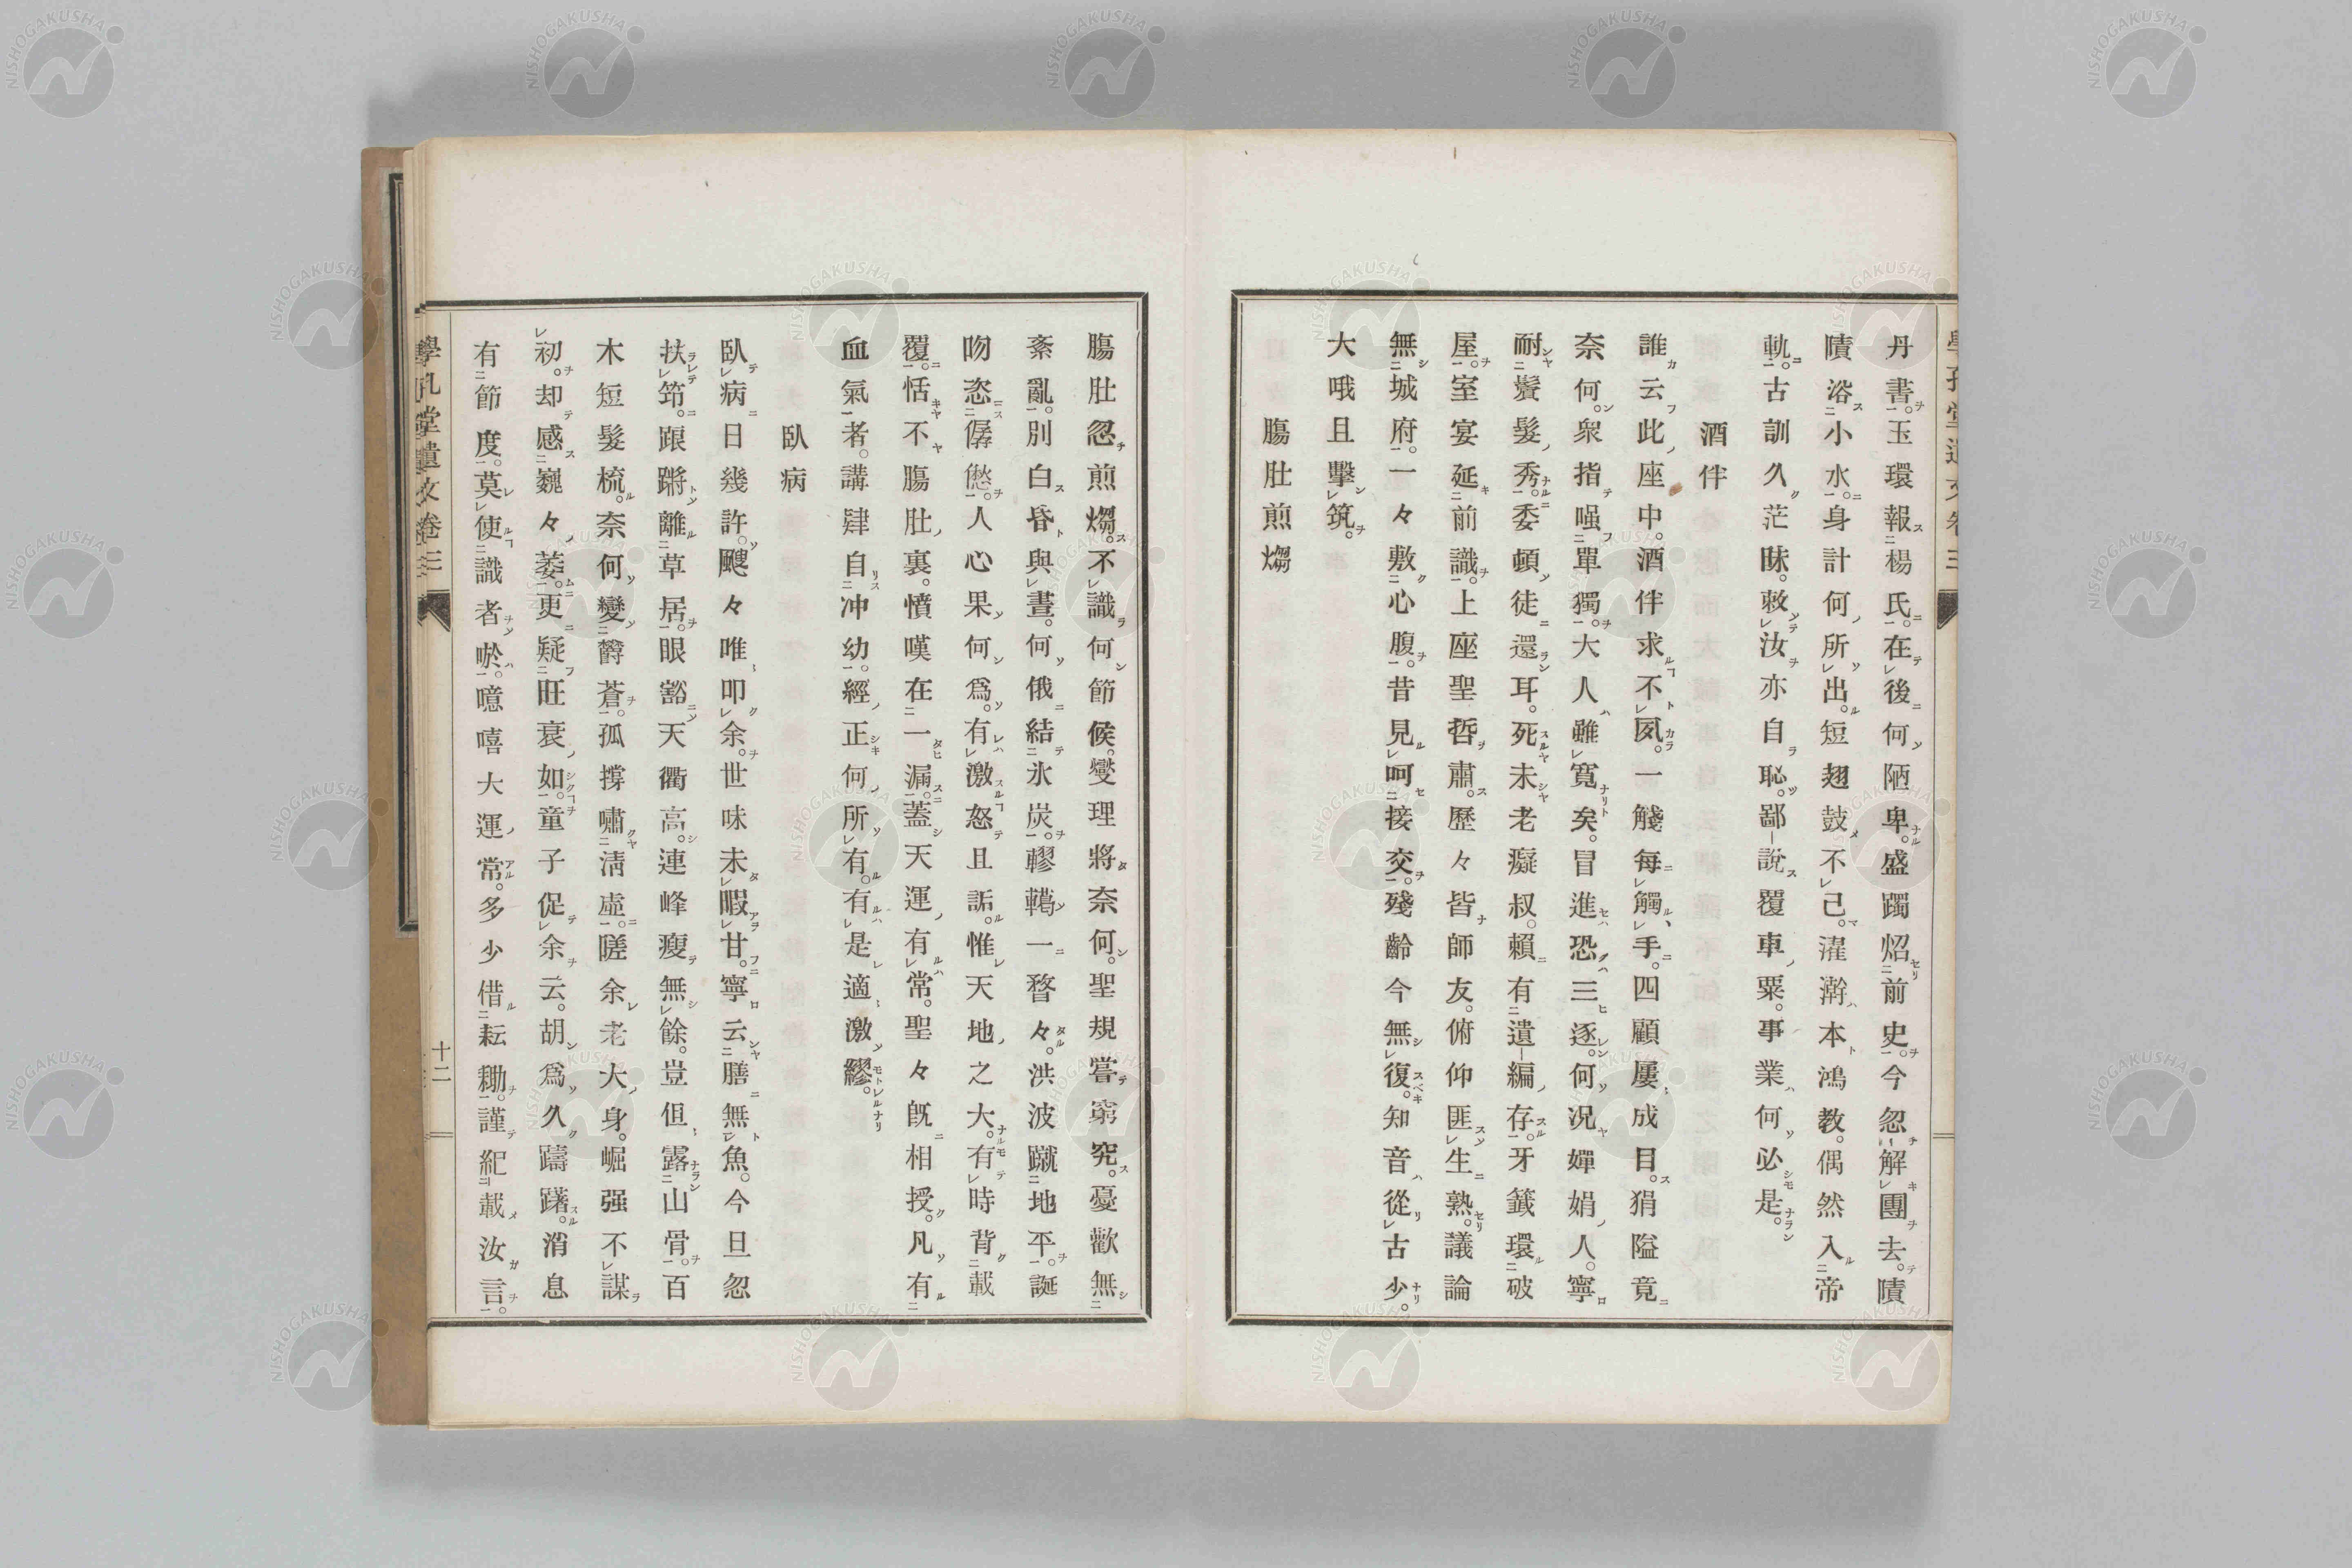 丹書。玉環報楊氏。在後何陋卑。盛躅炤前史。今忽解團去。賾
賾浴小水。身計何所出。短翅鼓不已。漼澣本鴻教。偶然入帝
軌。古訓久茫昧。敎汝亦自恥。鄙說覆車粟。事業何必是。
酒伴
誰云此座中。酒伴求不夙。一觴每觸手。四顧屢成目。狷隘竟
奈何。衆指嗤單獨。大人雖寬矣。冒進恐三逐。何况嬋娟人。寧
耐鬢髮秀。委頓徒還耳。死未老癡叔。賴有遺編存。牙籤環破
屋。室宴延前識。上座聖哲肅。歷々皆師友。俯仰匪生熟。議論
無城府。一々敷心腹。昔見呵接交。殘齡今無復。知音從古少。
大哦且擊筑。
腸肚煎煼
腸肚忽煎煼。不識何節候。燮理將奈何。聖規嘗窮究。憂歡無
紊亂。別白昏與晝。何俄結氷炭。轇轕一瞀々。洪波蹴地平。誕
吻恣僝僽。人心果何爲。有激怒且詬。惟天地之大。有時背載
覆。恬不腸肚裏。憤嘆在一漏。蓋天運有常。聖々旣相授。凡有
血氣者。講肄自冲幼。經正何所有。有是適激繆。
臥病
臥病日幾許。颼々唯叩余。世味未暇甘。寧云膳無魚。今旦忽
扶筇。踉蹡離草居。眼豁天衢高。連峰瘦無餘。豈但露山骨。百
木短髮梳。奈何變欝蒼。孤撐嘯淸虛。嗟余老大身。崛强不謀
初。却感巍々萎。更疑旺衰如。童子促余云。胡爲久躊躇。消息
有節度。莫使識者唹。噫嘻大運常。多少借耘耡。謹紀載汝言。
學孔堂遺文卷三
十二